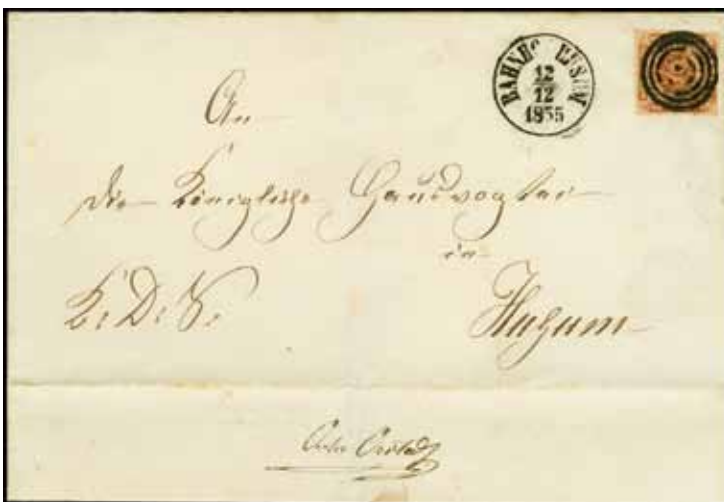 BAHNH HUSUM
12
12
1855
An
die Königliche Hausvogtei
in
K: D: S: Husum